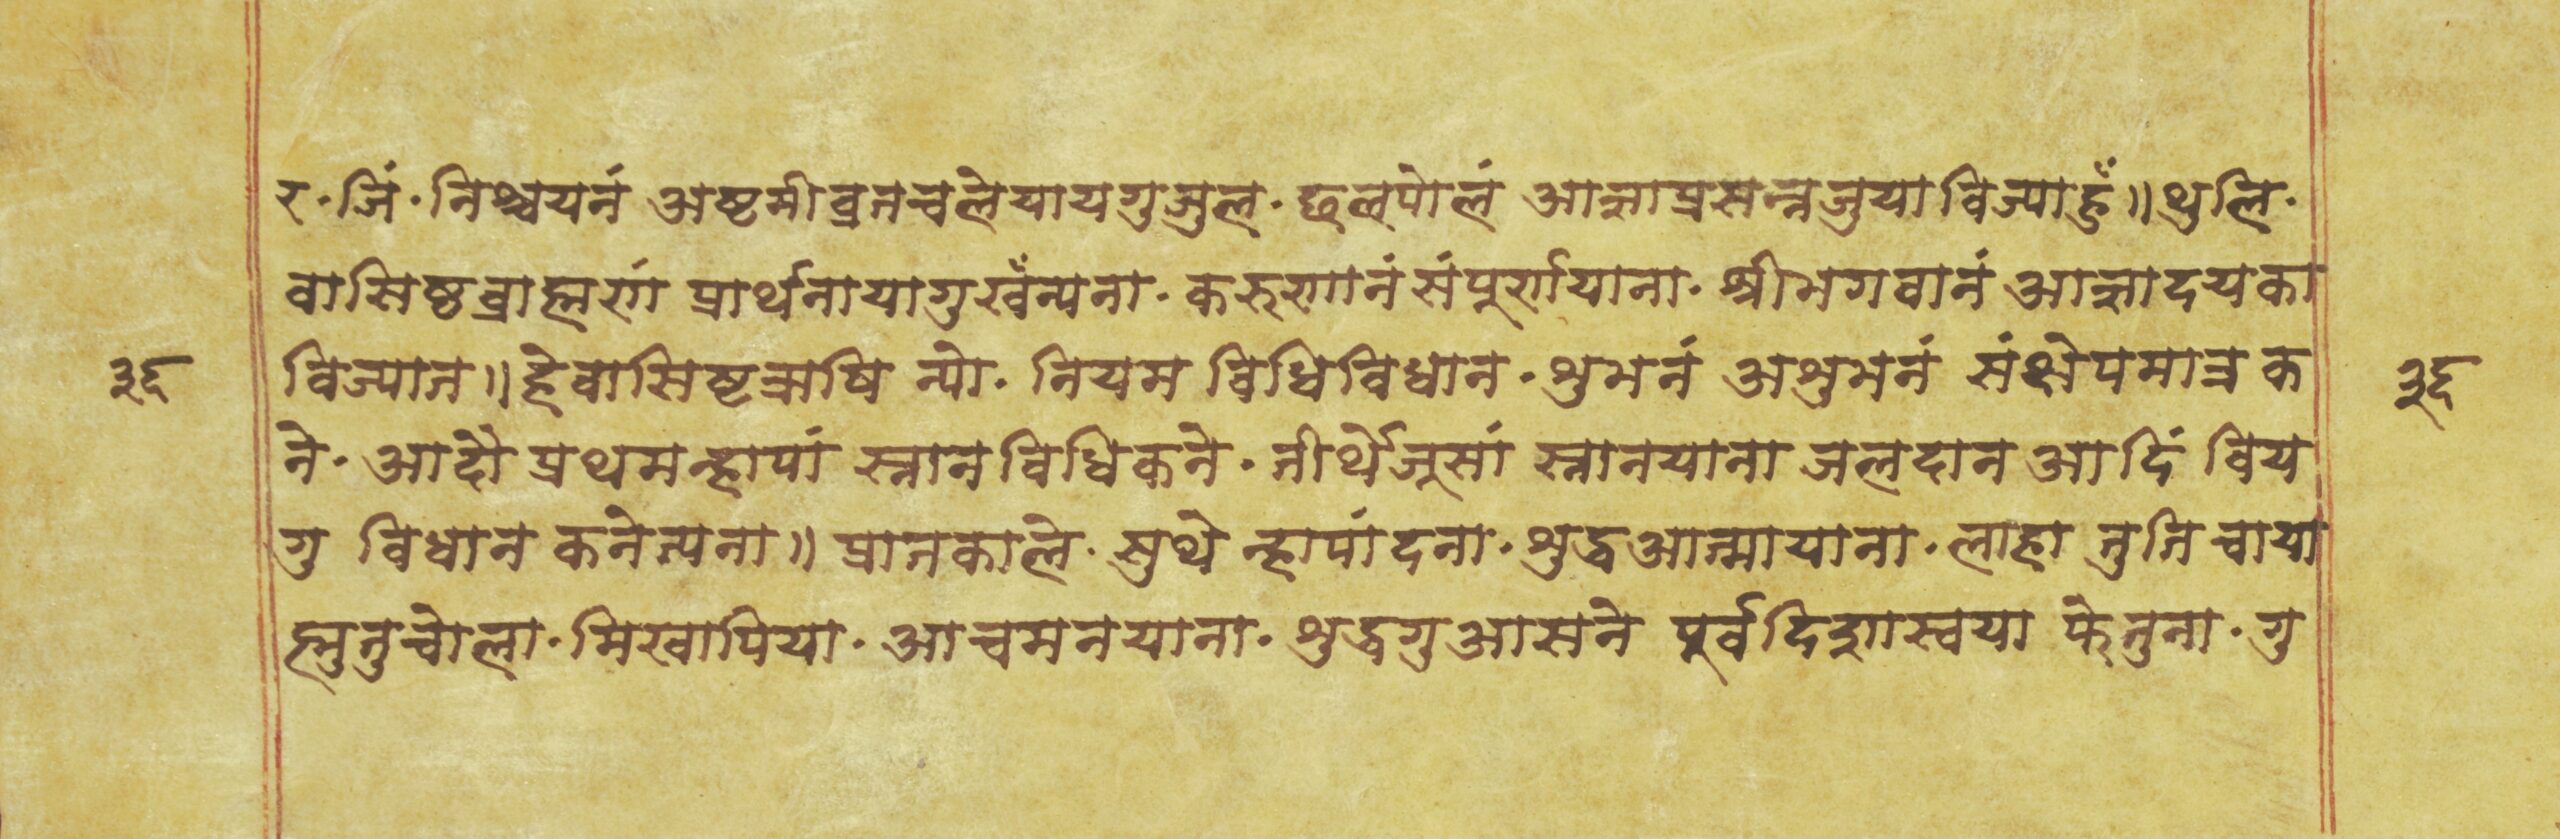 र · जिं · निश्चयनं अष्टमीव्रतचलेयायगुजुल · छलपोलं आज्ञाप्रसन्नजुयाविज्याहुँ॥ थुलि ·
वासिष्ठब्राह्मणं प्रार्थनायागुखँन्यना · करुणानं संपूर्णयाना · श्रीभगवानं आज्ञादयका
विज्यात॥ हेवासिष्टऋषि न्यो · नियम विधिविधान · शुभनं अशुभनं संक्षेपमात्र क
३६ ३६
ने · आदौ प्रथमन्हापां स्नानविधिकने · तीर्थेजूसां स्नानयाना जलदान आदिं विय
गु विधान कनेन्यना॥ प्रातकाले · सुथे न्हापांदना · शुद्धआत्मायाना · लाहा तुतिचाया
ह्मुतुचोला · मिखापिया · आचमनयाना · शुद्धगुआसने पूर्वदिशास्वया फेतुना · गु